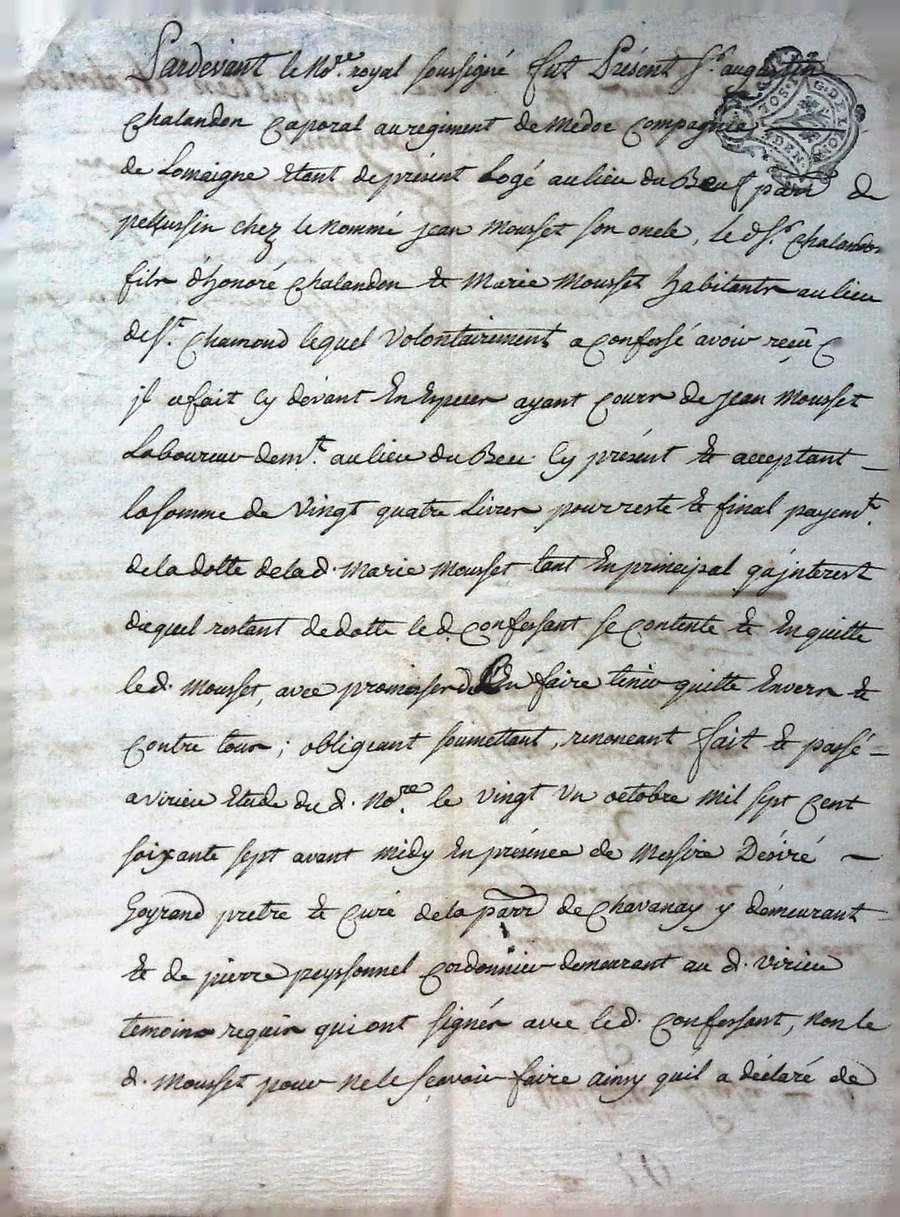 Pardevant le No.re royal soussigné fut Présent Sr. augustin
Chalandon Caporal au regiment de Medoc Compagnie
de Lomaigne Etant de présent Logé au lieu du Beuf parr de
pelussin chez le nommé jean Mousset son oncle, le d. Sr. Chalandon
fils d'honóré Chalandon & Marie Mousset habitants au lieu
de St. Chamond lequel volontairement a Confessé avoir reçû C
il a fait Cy dévant En Especes ayant Cours de jean Mousset
Laboureur demt. au lieu du Beu Cy présent & acceptant
la somme de vingt quatre Livres pour reste & final payemt.
de la dotte de la d. Marie Mousset tant En principal qá jnterest
duquel restant de dotte le d. Confessant se Contente & En quitte
le d. Mousset, avec promesses d' En faire tenir quitte Envers &
Contre tous ; obligeant soumettant, renonceant fait & passé
a virieu Etude du d. No.re le vingt un octobre mil sept Cent
soixante sept avant midy En présence de Messire Désiré
Goyrand pretre & Curé de la parr de Chavanay y démeurant
& de pierre peyssonnel Cordonnier demeurant au d. virieu
temoins requis qui ont signés avec le d. Confessant, non le
d. Mousset pour ne le sçavoir faire ainsy quil a déclaré de
G. DE LYON
SOL
DEN